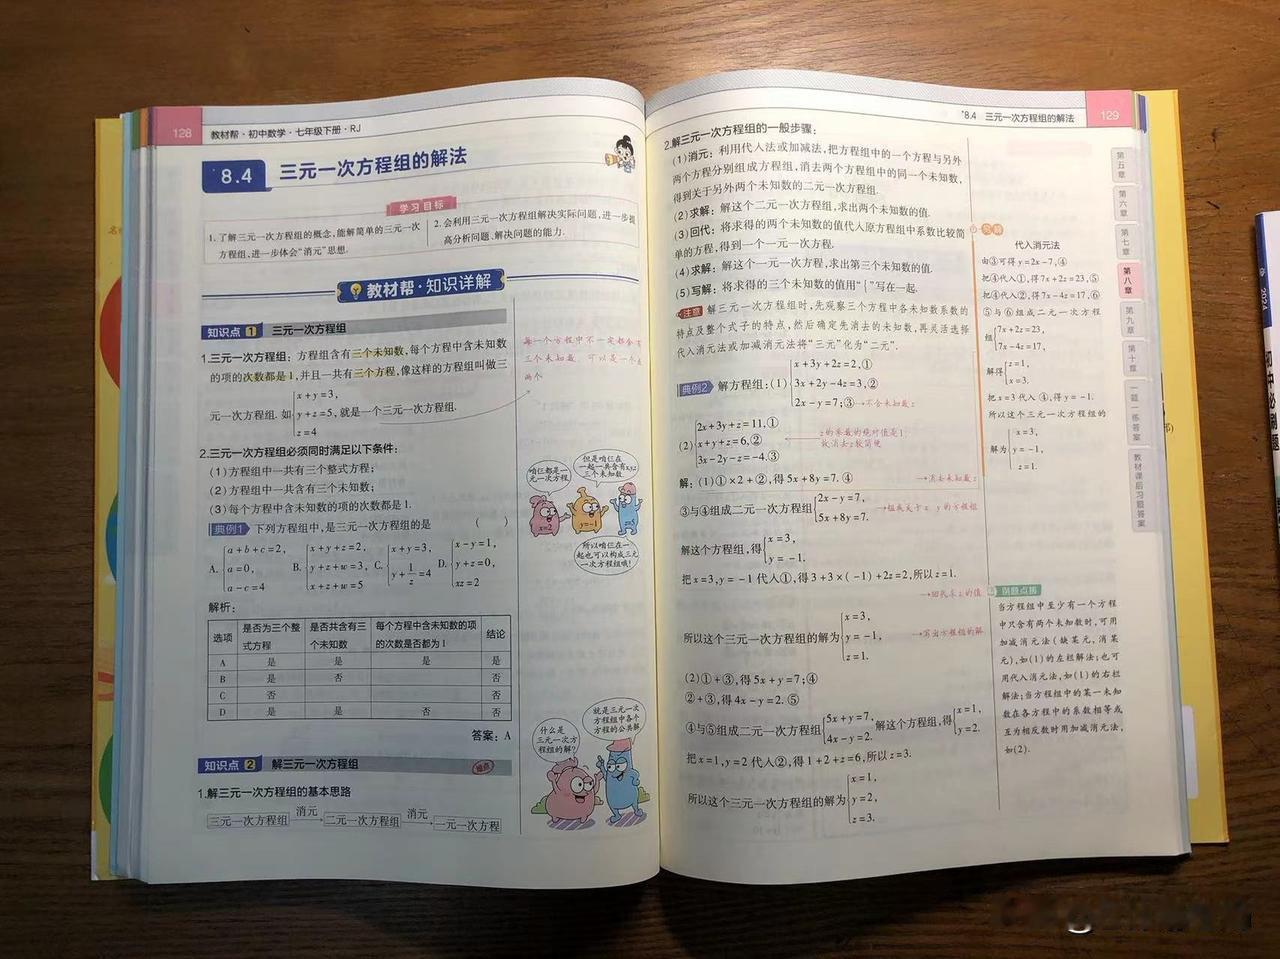 128
教材帮·初中数学·七年级下册·RJ
8.4 三元一次方程组的解法
学习目标
1.了解三元一次方程组的概念,能解简单的三元一次
方程组,进一步体会“消元”思想.
2.会利用三元一次方程组解决实际问题,进一步提
高分析问题、解决问题的能力.
教材帮·知识详解
知识点1 三元一次方程组
1.三元一次方程组:方程组含有三个未知数,每个方程中含未知数
的项的次数都是1,并且一共有三个方程,像这样的方程组叫做三
元一次方程组.如{x+y=3, y+z=5, z=4 就是一个三元一次方程组.
每一个方程中不一定都含有
三个未知数,可以是一个或
两个
2.三元一次方程组必须同时满足以下条件:
(1)方程组中一共有三个整式方程;
(2)方程组中一共含有三个未知数;
(3)每个方程中含未知数的项的次数都是1.
典例1 下列方程组中,是三元一次方程组的是 ( )
A.{a+b+c=2, a=0, a-c=4 B.{x+y+z=2, y+z+w=3, x+z+w=5 C.{x+y=3, y+1/z=4 D.{x-y=1, y+z=0, xz=2
解析:
选项 是否为三个整式方程 是否共含有三个未知数 每个方程中含未知数的项的次数是否都为1 结论
A 是 是 是 是
B 是 否 否
C 否 否
D 是 是 否 否
答案:A
咱仨都是一
元一次方程
但是咱仨在
一起一共含有x,y,z
三个未知数
x=2
y=-1
所以咱仨在一
起也可以构成三元
一次方程组哦!
知识点2 解三元一次方程组
重点
1.解三元一次方程组的基本思路
三元一次方程组 消元→ 二元一次方程组 消元→ 一元一次方程
什么是
三元一次方
程组的解?
就是三元一次
方程组中各个
方程的公共解
*8.4 三元一次方程组的解法
129
2.解三元一次方程组的一般步骤:
(1)消元:利用代入法或加减法,把方程组中的一个方程与另外
两个方程分别组成方程组,消去两个方程组中的同一个未知数,
得到关于另外两个未知数的二元一次方程组.
(2)求解:解这个二元一次方程组,求出两个未知数的值.
(3)回代:将求得的两个未知数的值代入原方程组中系数比较简
单的方程,得到一个一元一次方程.
(4)求解:解这个一元一次方程,求出第三个未知数的值.
(5)写解:将求得的三个未知数的值用“{”写在一起.
注意 解三元一次方程组时,先观察三个方程中各未知数系数的
特点及整个式子的特点,然后确定先消去的未知数,再灵活选择
代入消元法或加减消元法将“三元”化为“二元”.
典例2 解方程组:(1){x+3y+2z=2,① 3x+2y-4z=3,② 2x-y=7;③
→不含未知数z
(2){2x+3y+z=11,① x+y+z=6,② 3x-2y-z=-4.③
z的系数的绝对值是1,
故消去z较简便
解:(1)①×2+②,得5x+8y=7.④
→消去未知数z
③与④组成二元一次方程组{2x-y=7, 5x+8y=7.
→组成关于x y的方程组
解这个方程组,得{x=3, y=-1.
把x=3,y=-1代入①,得3+3×(-1)+2z=2,所以z=1.
→回代求z的值
所以这个三元一次方程组的解为{x=3, y=-1, z=1.
→写出方程组的解
(2)①+③,得5x+y=7;④
②+③,得4x-y=2.⑤
④与⑤组成二元一次方程组{5x+y=7, 4x-y=2. 解这个方程组,得{x=1, y=2.
把x=1,y=2代入②,得1+2+z=6,所以z=3.
所以这个三元一次方程组的解为{x=1, y=2, z=3.
代入消元法
由③可得y=2x-7,④
把④代入①,得7x+2z=23,⑤
把④代入②,得7x-4z=17,⑥
⑤与⑥组成二元一次方程
组{7x+2z=23, 7x-4z=17,
解得{z=1, x=3.
把x=3代入④,得y=-1.
所以这个三元一次方程组的
解为{x=3, y=-1, z=1.
例题点拨
当方程组中至少有一个方程
中只含有两个未知数时,可用
加减消元法(缺某元,消某
元),如(1)的左栏解法;也可
用代入消元法,如(1)的右栏
解法;当方程组中的某一未知
数在各方程中的系数相等或
互为相反数时用加减消元法,
如(2).
第五章
第六章
第七章
第八章
第九章
第十章
一题一练答案
教材课后习题答案
2024
初中必刷题